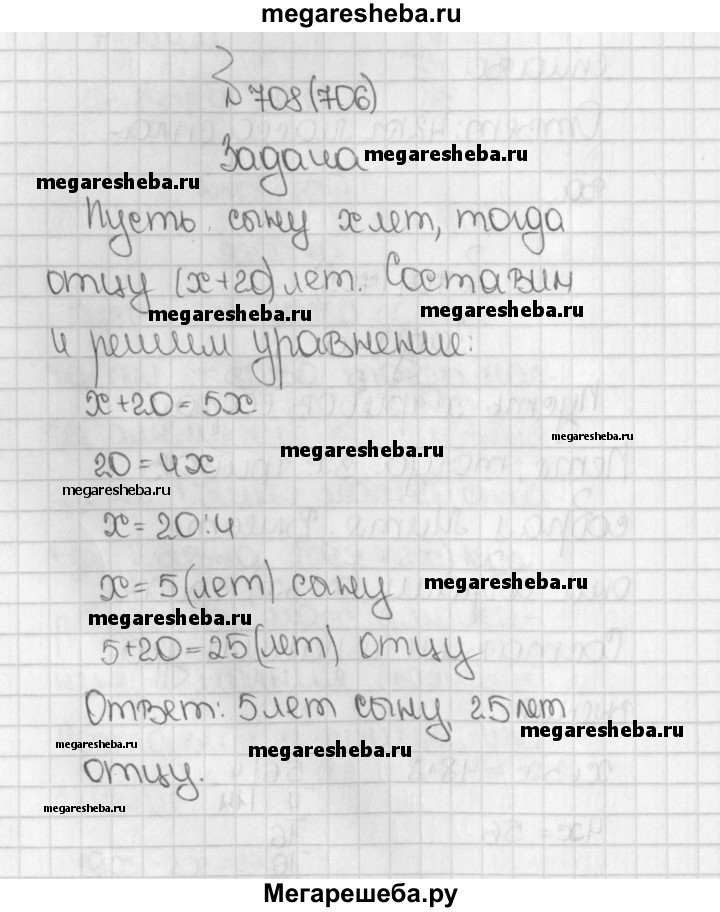 megaresheba.ru
№ 708 (706)
Задача megaresheba.ru
megaresheba.ru
Пусть сыну x лет, тогда
отцу (x+20) лет. Составим
megaresheba.ru megaresheba.ru
и решим уравнение:
x+20=5x
megaresheba.ru
20=4x megaresheba.ru
megaresheba.ru
x=20:4
x=5(лет) сыну megaresheba.ru
megaresheba.ru
5+20=25(лет) отцу
Ответ: 5 лет сыну, 25 лет
megaresheba.ru
megaresheba.ru megaresheba.ru
отцу.
megaresheba.ru
Мегарешеба.ру